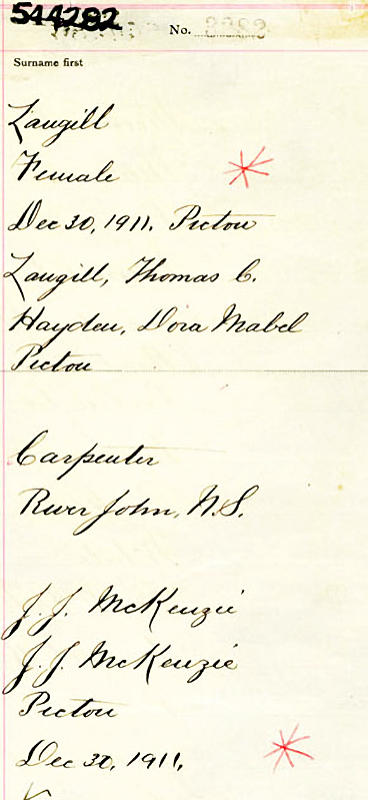 544282
No.
Surname first
Langill
Female
Dec 30, 1911. Pictou
Langill, Thomas C.
Hayden, Dora Mabel
Pictou
Carpenter
River John, N.S.
J. J. McKenzie
J. J. McKenzie
Pictou
Dec 30, 1911,